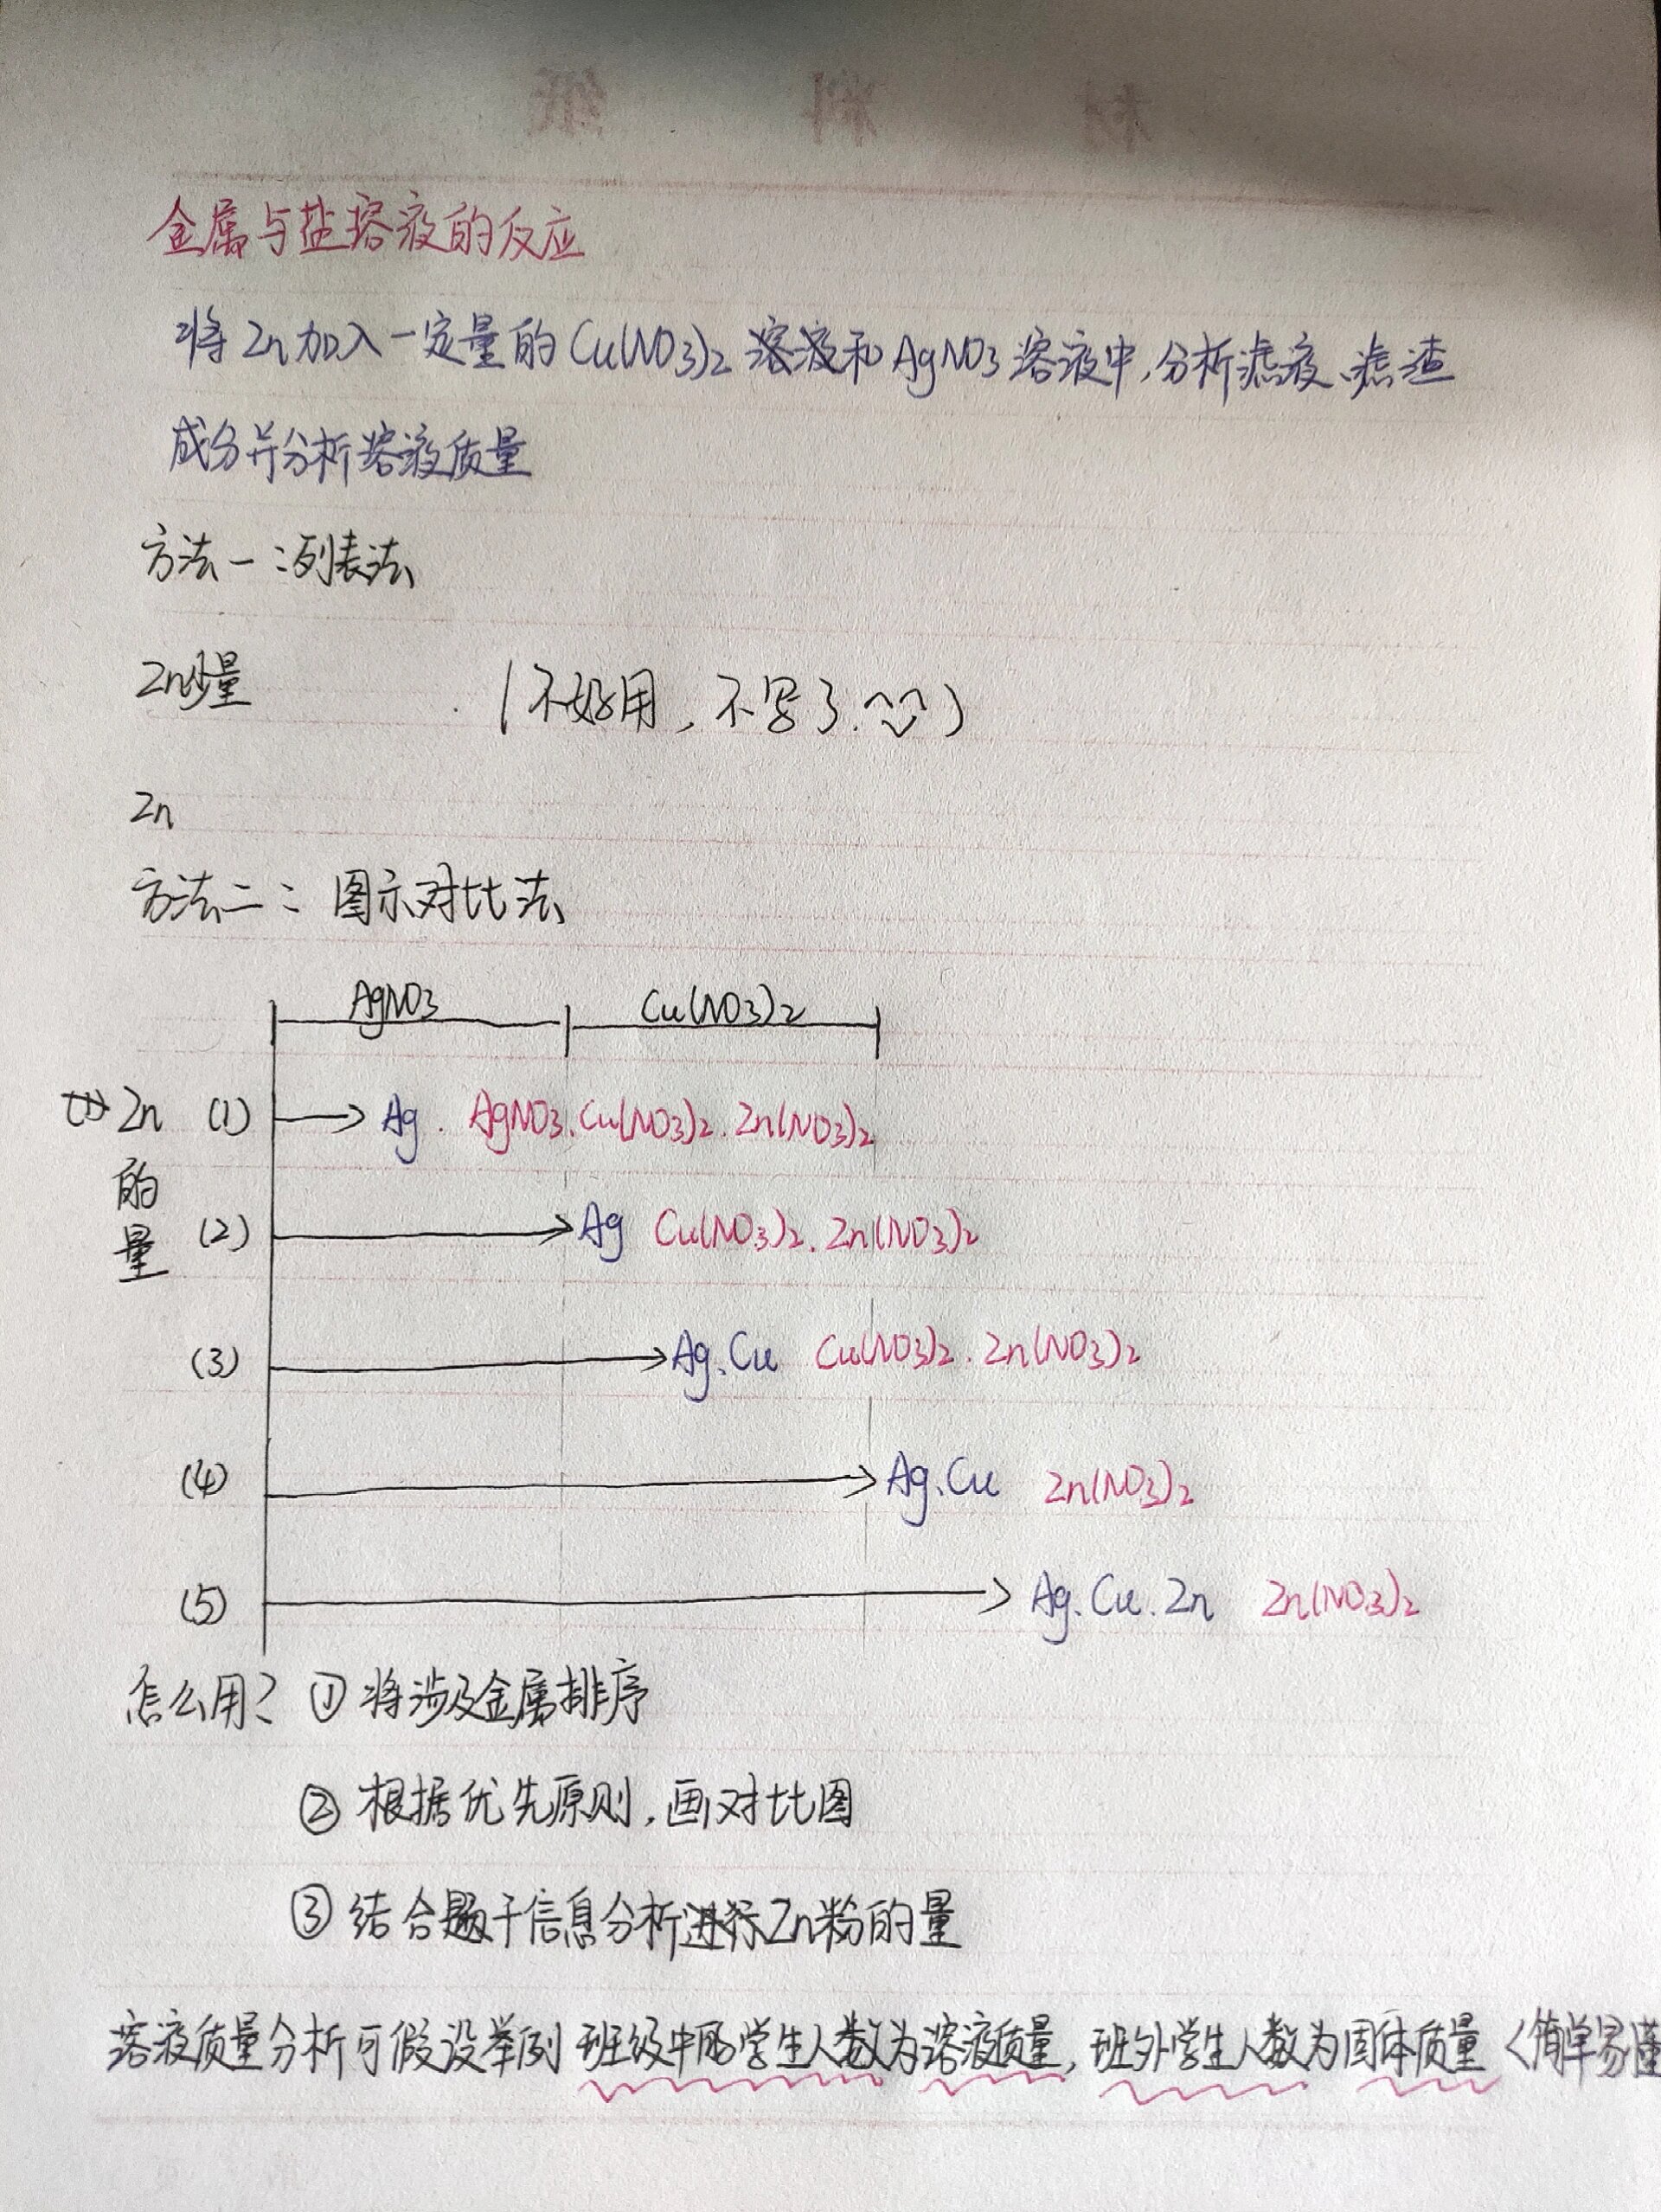 材料纸
金属与盐溶液的反应
将Zn加入一定量的Cu(NO3)2溶液和AgNO3溶液中,分析滤液、滤渣
成分并分析溶液质量
方法一:列表法
Zn少量 (不好用,不写了.^_^)
Zn
方法二: 图示对比法
AgNO3 Cu(NO3)2
Zn (1) Ag. AgNO3.Cu(NO3)2.Zn(NO3)2
的
量 (2) Ag Cu(NO3)2.Zn(NO3)2
(3) Ag.Cu Cu(NO3)2.Zn(NO3)2
(4) Ag.Cu Zn(NO3)2
(5) Ag.Cu.Zn Zn(NO3)2
怎么用? ①将涉及金属排序
②根据优先原则,画对比图
③结合题干信息分析进行Zn粉的量
溶液质量分析可假设举例 班级中的学生人数为溶液质量,班外学生人数为固体质量<简单易懂